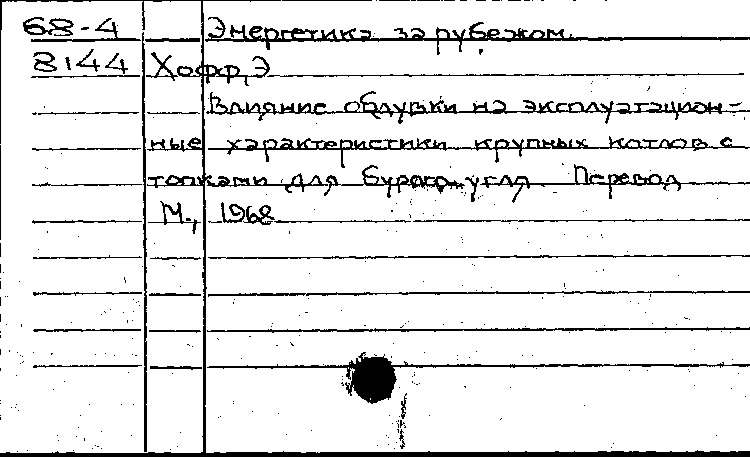 68-4 Энергетика за рубежом.
8144 Хофф, Э
Влияние обдувки на эксплуатацион-
ные характеристики крупных котлов с
топками для бурого угля Перевод
М., 1968